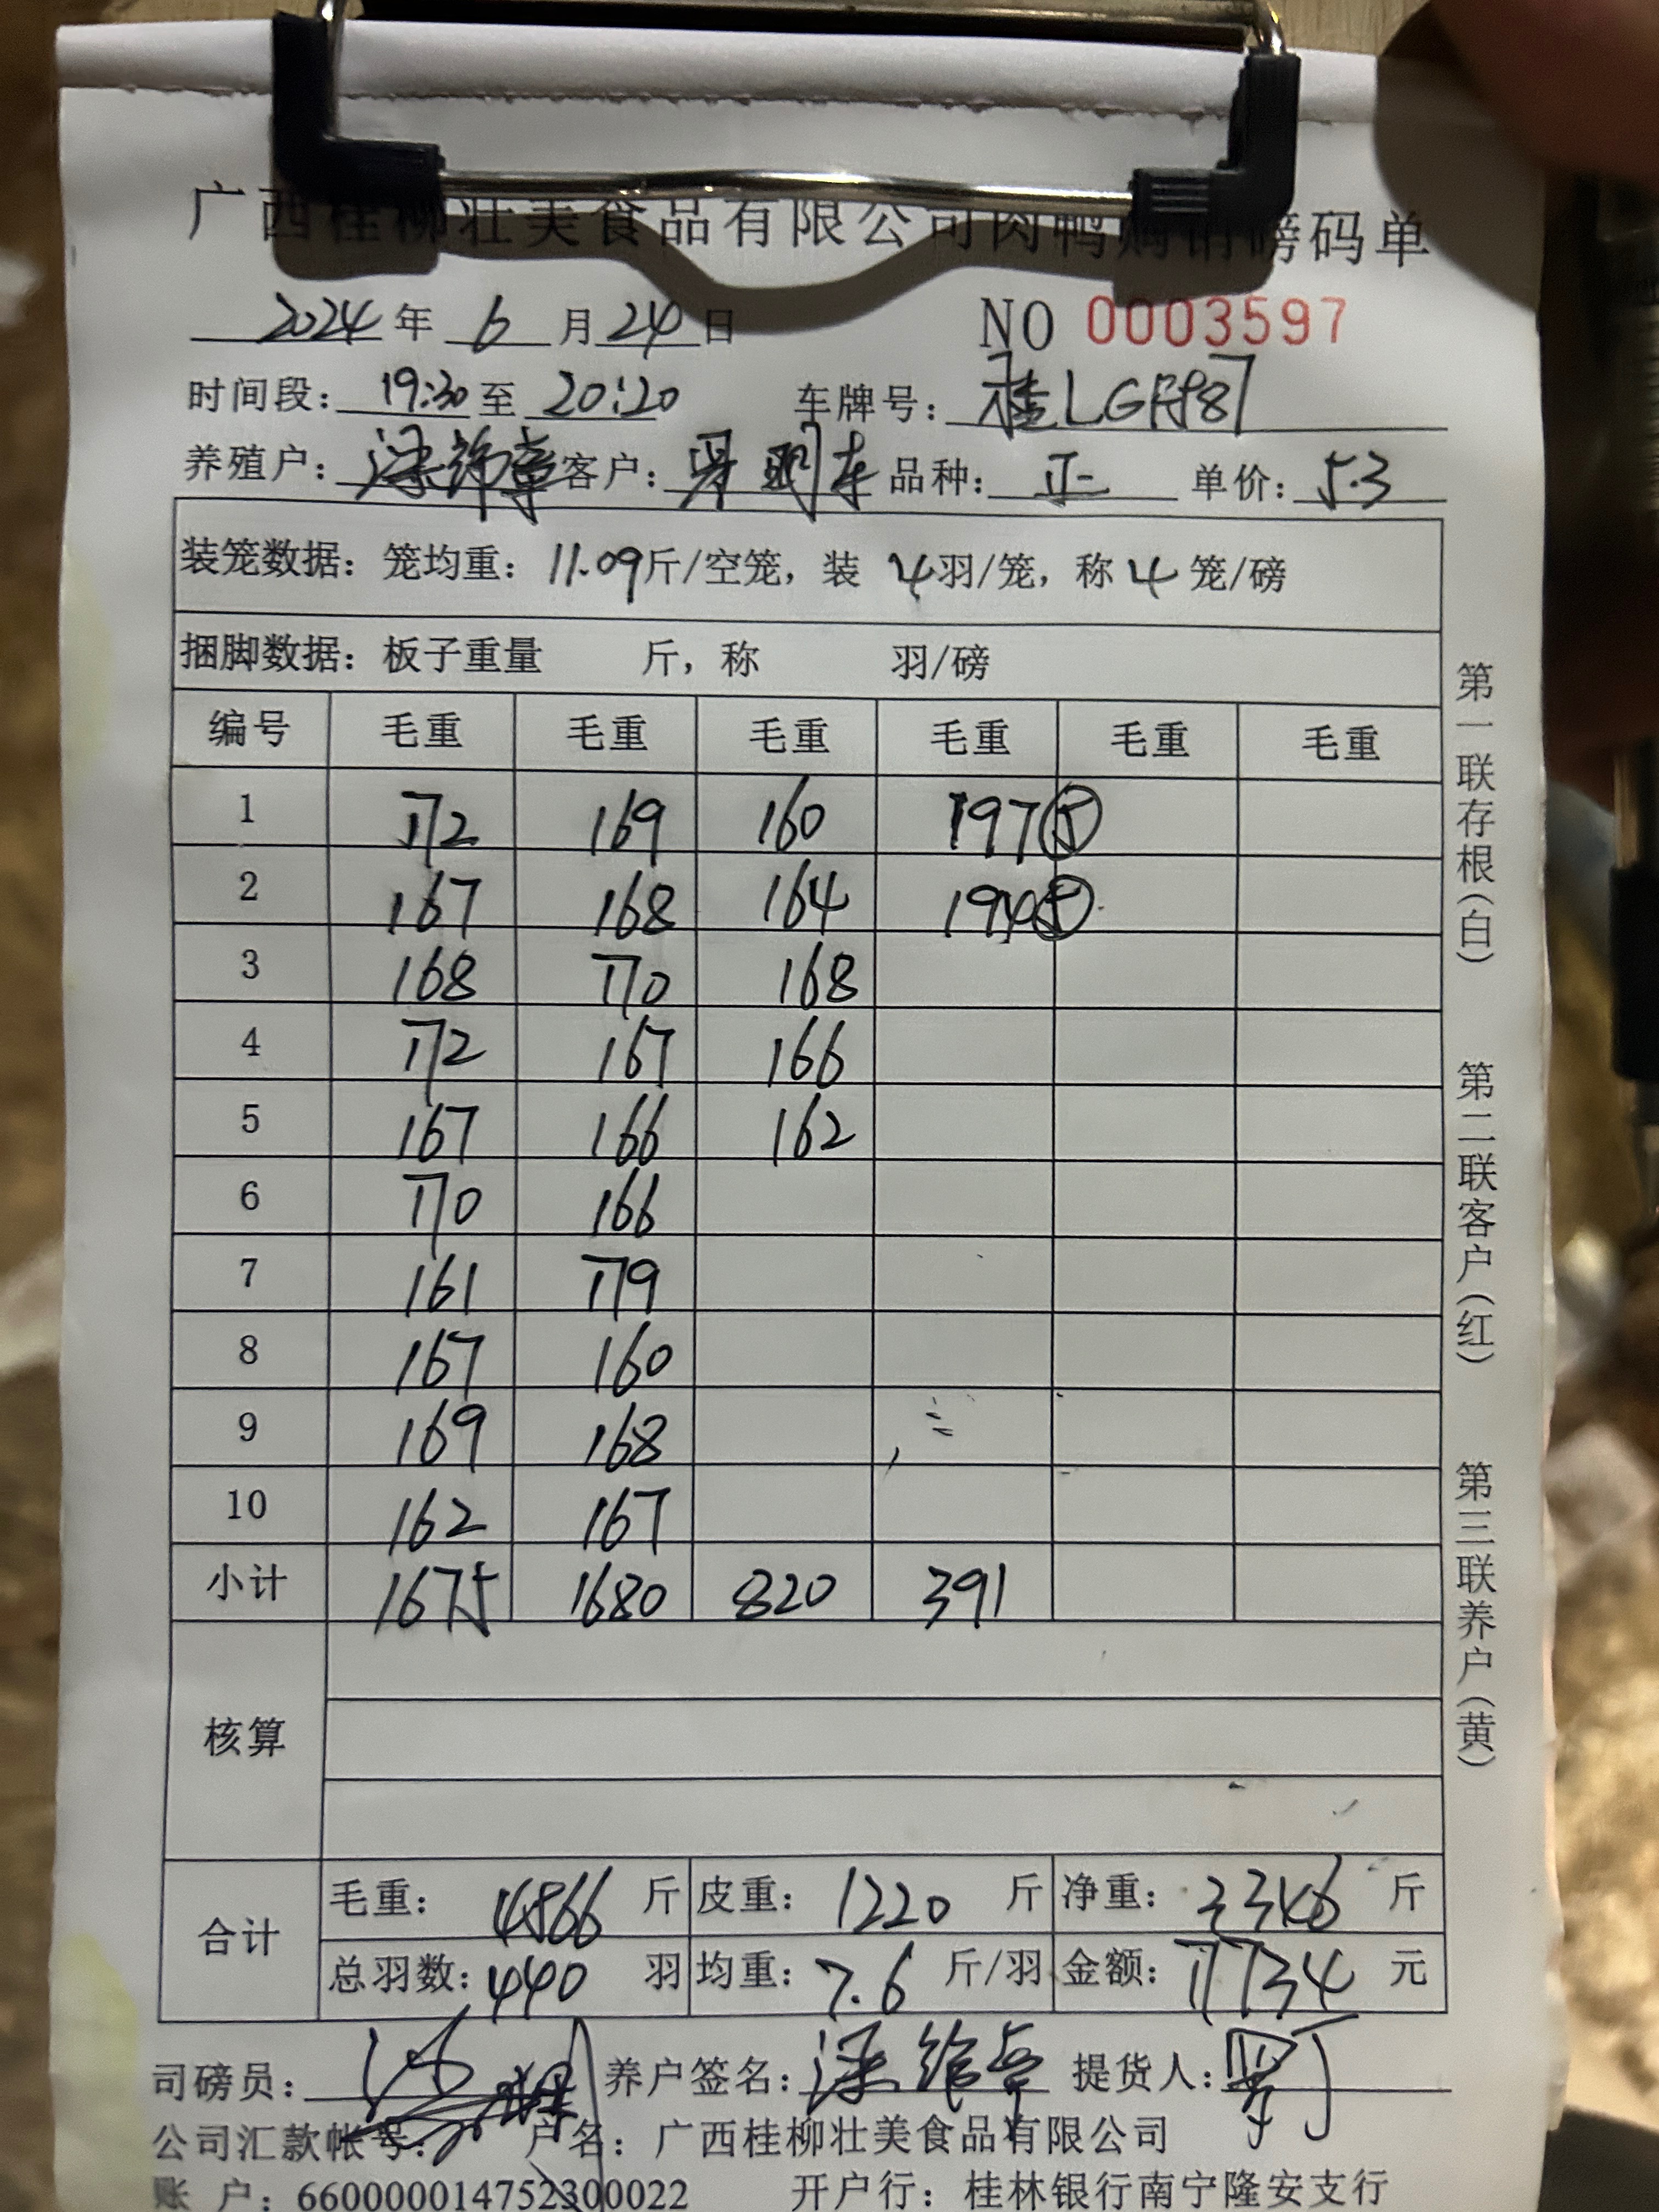 广西桂柳壮美食品有限公司肉鸭购销磅码单
2024 年 6 月 24 日 NO 0003597
时间段: 19:30 至 20:20 车牌号: 桂LG
养殖户: 客户: 品种: 正 单价: 5.3
装笼数据: 笼均重: 11.09斤/空笼, 装 4羽/笼, 称 4 笼/磅
捆脚数据: 板子重量 斤, 称 羽/磅
编号 毛重 毛重 毛重 毛重 毛重 毛重
1 172 169 160 197⑤
2 167 168 164 194⑤
3 168 170 168
4 172 167 166
5 167 166 162
6 170 166
7 161 179
8 167 160
9 169 168
10 162 167
小计 1675 1680 820 391
核算
合计 毛重: 4566 斤 皮重: 1220 斤 净重: 3346 斤
总羽数: 440 羽 均重: 7.6 斤/羽 金额: 17734 元
司磅员: 养户签名: 提货人:
公司汇款帐号: 户名: 广西桂柳壮美食品有限公司
账 户: 660000014752300022 开户行: 桂林银行南宁隆安支行
第一联存根(白) 第二联客户(红) 第三联养户(黄)